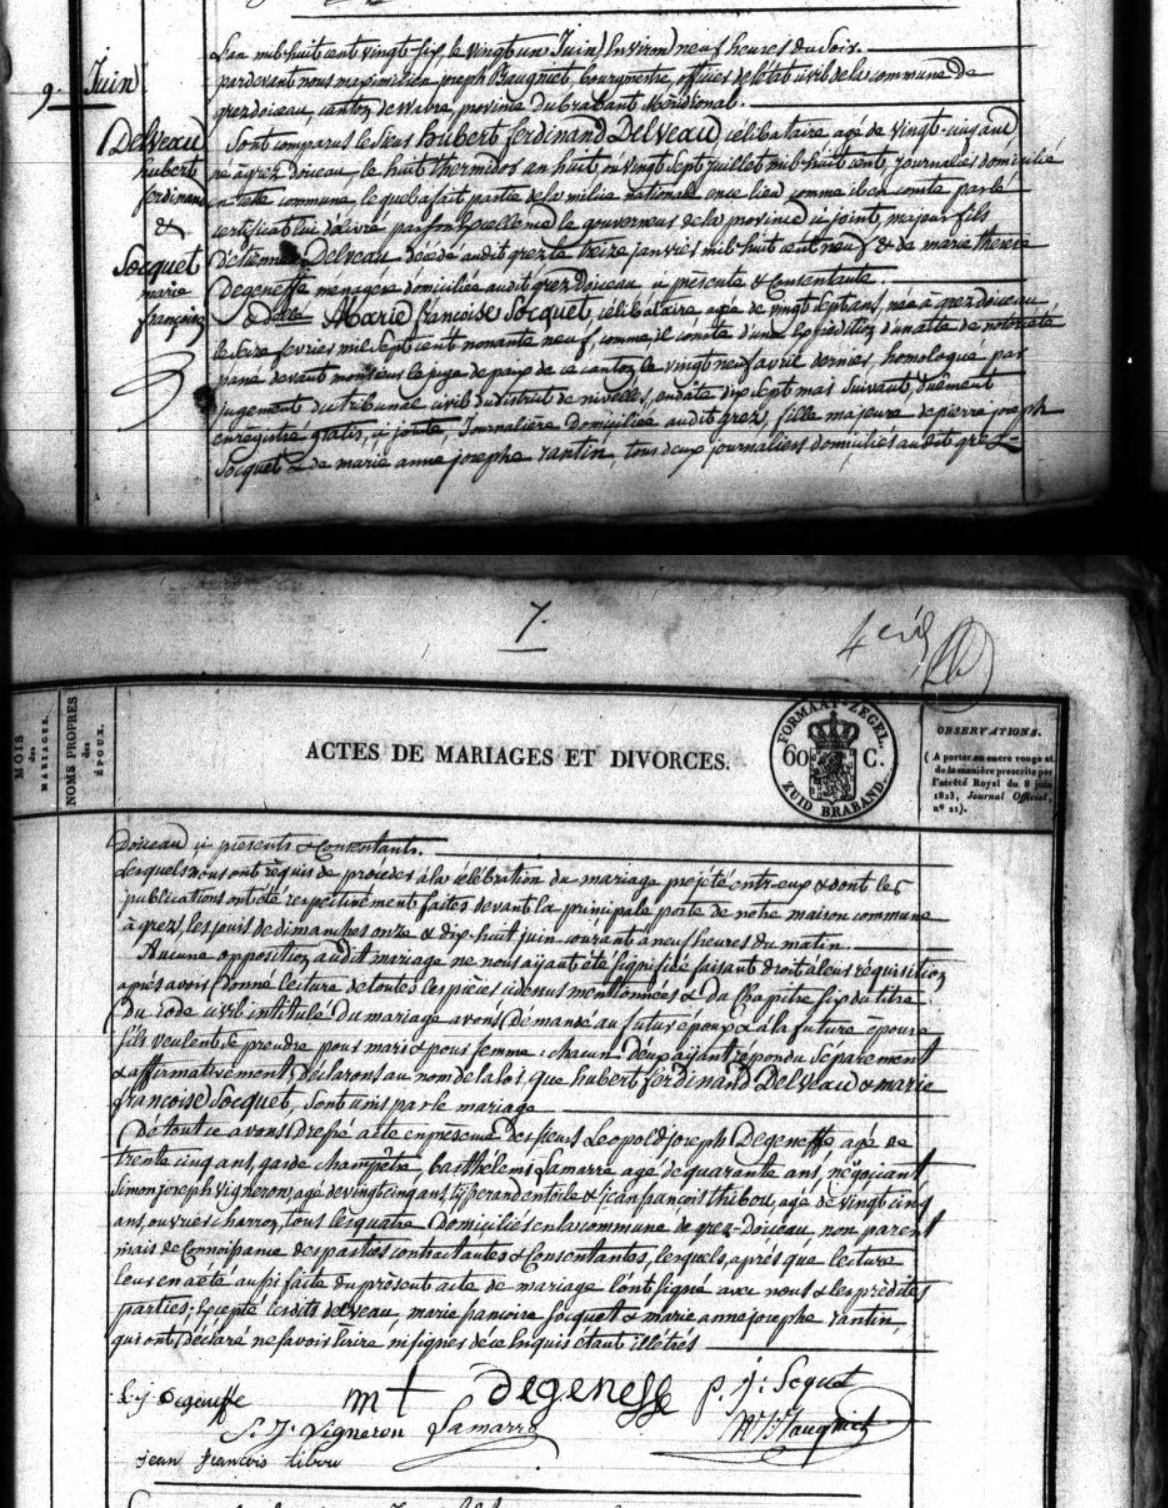 L'an mil-huit cent vingt six, le vingt un Juin Environ neuf heures du Soir.
9. Juin
pardevant nous maximilien joseph Baugniet, bourgmestre, officier de l'état civil de la commune de
grez doiceau, canton de Wavre, province du Brabant Méridional.
Delveau
hubert
ferdinand
&
Socquet
marie
françoise
Sont comparus le Sieur hubert ferdinand Delveau, célibataire agé de vingt-cinq ans,
né à grez doiceau, le huit thermidor an huit, ou vingt sept juillet mil-huit cent, journalier domicilié
en cette commune, lequel a fait partie de la milice nationale en ce lieu comme il en conste par le
certificat lui délivré par son Excellence le gouverneur de la province ci joint, majeur fils
d'étienne Delveau décédé audit grez le treize janvier mil-huit cent neuf & de marie thérèse
Degeneffe ménagère domiciliée audit grez Doiceau ci présente & Consentante.
& dlle Marie françoise Socquet, célibataire agée de vingt sept ans, née à grez doiceau,
le Seize fevrier mil Sept cent nonante neuf, comme il conste d'une Expédition d'un acte de notoriété
passé devant monsieur le juge de paix de ce canton le vingt neuf avril dernier, homologué par
jugement du tribunal civil du district de nivelles, en date dix sept mai Suivant, dûement
enregistré gratis, ci jointe, Journalière Domiciliée audit grez, fille majeure de pierre joseph
Socquet & de marie anne josephe tantin, tous deux journaliers domiciliés au dit grez-
7.
MOIS des MARIAGES.
NOMS PROPRES des ÉPOUX.
ACTES DE MARIAGES ET DIVORCES.
FORMAAT-ZEGEL.
60 C.
ZUID BRABAND.
OBSERVATIONS.
( A porter en encre rouge et
de la manière prescrite par
l'arrêté Royal du 8 juin
1823, Journal Officiel,
nº 21).
Doiceau ci présents & Consentants.
Lesquels nous ont réquis de procéder à la célébration du mariage projeté entr-eux & dont les
publications ont été respectivement faites devant la principale porte de notre maison commune
à grez, les jours de dimanches onze & dix-huit juin courant a neuf heures du matin.
Aucune opposition audit mariage ne nous ayant été signifiée faisant droit à leur réquisition
après avoir Donné lecture de toutes les pièces ci dessus mentionnées & du Chapitre six du titre
du code civil intitulé Du mariage avons Démandé au futur époux & à la future épouse
s'ils veulent Se prendre pour mari & pour femme : chacun d'eux ayant répondu Séparement
& affirmativement, Déclarons au nom de la loi, que hubert ferdinand Delveau & marie
françoise Socquet, Sont unis par le mariage
De tout ce avons Dressé acte en présence des sieurs Leopold joseph Degeneffe agé de
trente cinq ans, garde champêtre, barthélemi Lamarre agé de quarante ans, négociant
Simon joseph Vigneron, agé de vingt cinq ans, tisserand en toile & jean françois thibou, agé de vingt cinq
ans, ouvrier charron, tous les quatre Domiciliés en la commune de grez-Doiceau, non parent
mais de Connoissance des parties contractantes & Consentantes, lesquels, après que lecture
leur en a été aussi faite du présent acte de mariage l'ont signé avec nous & les prédites
parties; Excepté lesdits delveau, marie francoise Socquet & marie anne josephe tantin,
qui ont Déclaré ne savoir Ecrire ni signer de ce Enquis étant illétrés
L. j. Degeneffe
m t Degeneffe
p. j: Soquet
S. J. Vigneron
Lamarre
M J Baugniet
jean francois tibou